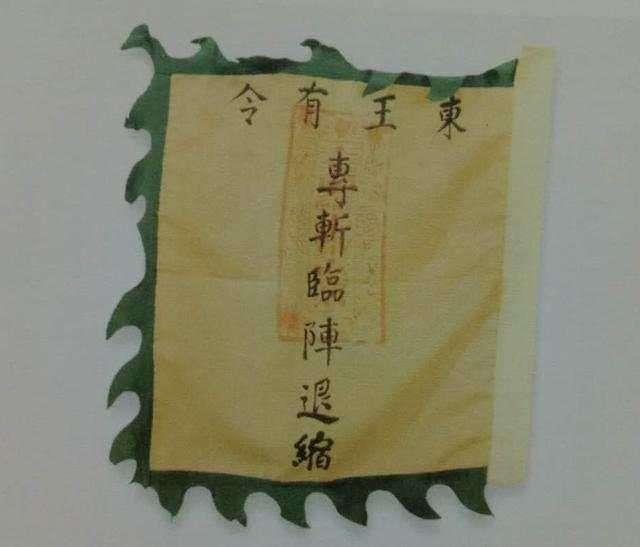 東王有令
專斬臨陣退縮